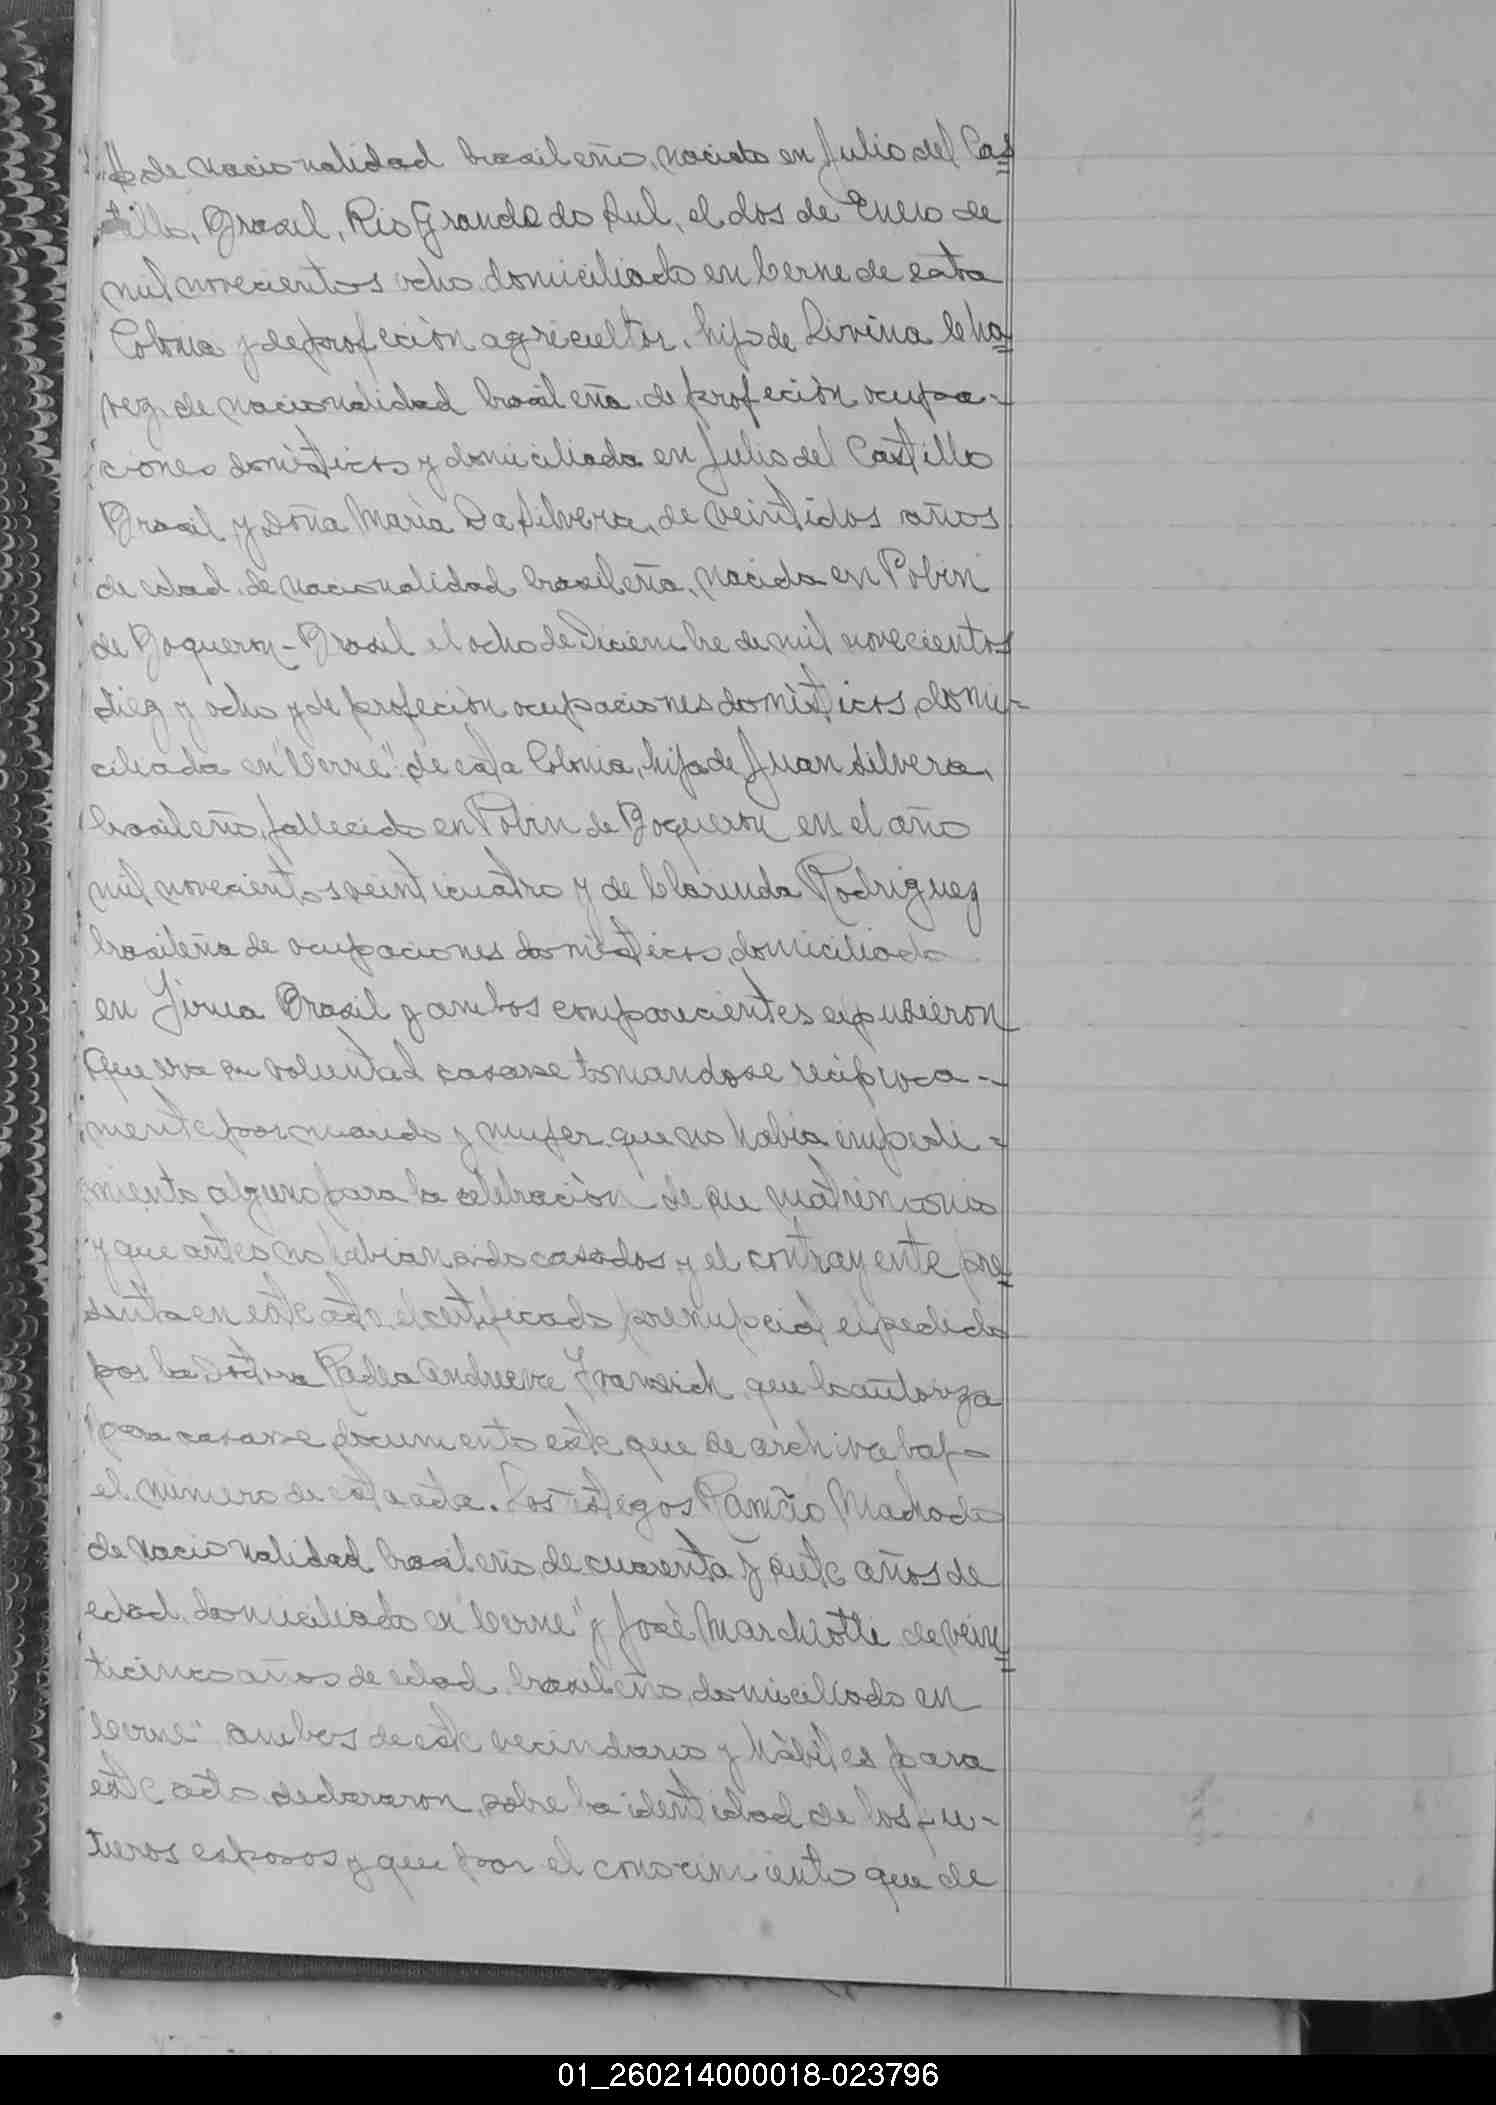 de nacionalidad brasileño, nacido en Julio del Cas
tillo, Brasil, Rio Grande do Sul, el dos de Enero de
mil novecientos ocho domiciliado en Cerne de esta
Colonia y de profeción agricultor, hijo de Divina Cha
vez de nacionalidad brasileña de profeción ocupa-
ciones domésticos y domiciliada en Julio del Castillo
Brasil y doña María Da Silvera, de veintidos años
de edad, de nacionalidad brasileña, nacida en Pobin
de Boqueron-Brasil el ocho de Diciembre de mil novecientos
diez y ocho y de profeción ocupaciones domésticos, domi-
ciliada en "Cerne" de esta Colonia, hija de Juan Silvera,
brasileño, fallecido en Pobin de Boqueron en el año
mil novecientos veinticuatro y de Clarinda Rodriguez
brasileña de ocupaciones domésticos, domiciliada
en Jirua Brasil y ambos comparecientes expusieron
que era su voluntad casarse tomandose reciproca-
mente por marido y mujer que no habia impedi-
miento alguno para la celebración de su matrimonio
y que antes no habian sido casados y el contrayente pre
senta en este acto el certificado prenupcial expedido
por la Dotora Radea Andreeve que lo autoriza
para casarse documento este que se archiva bajo
el número de esta acta. Los testigos Ramão Machado
de nacionalidad brasileño, de cuarenta y siete años de
edad, domiciliado en "Cerne" y José Marchiotti de vein
ticinco años de edad, brasileño, domiciliado en
"Cerne" ambos de este vecindario y hábiles para
este acto declararon, sobre la identidad de los fu-
turos esposos y que por el conocimiento que de
01_260214000018-023796